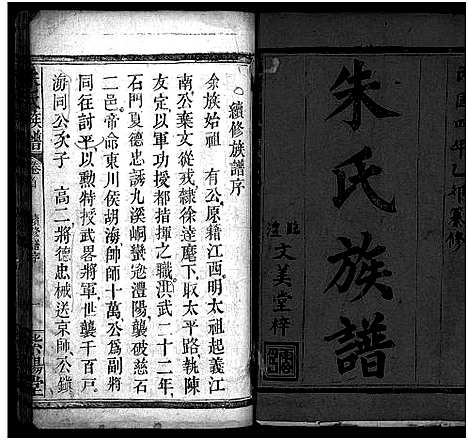 民國四年乙卯纂修
朱氏族譜
註禮文美堂梓
續修族譜序
余族始祖 有公原籍江西明太祖起義江
南公棄文從戎隸徐達麾下取太平路執陳
友定以軍功授都指揮之職洪武二十二年
石門夏德忠誘九溪峒蠻寇澧陽襲破慈石
二邑帝命東川侯胡海帥師十萬公為副將
同往討平以勲特授武畧將軍世襲千百戶
海同公次子 高二將德忠械送京師公鎮
朱氏族譜 卷首 續修譜序 一 紫陽堂